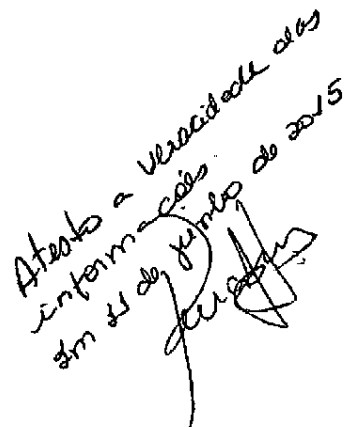 Atesto a veracidade das
informações.
Em 11 de junho de 2015